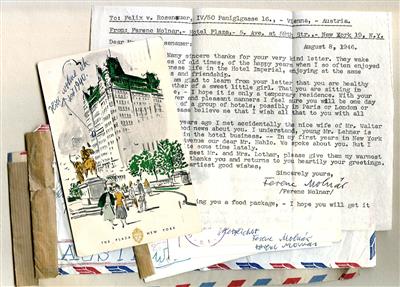 To: Felix v. Rosenauer, IV/50 Paniglgasse 16., - Vienna, - Austria.
From: Ferenc Molnar.- Hotel Plaza.- 5. Ave, at 59th Str.,- New York 19, N.Y.
August 8, 1946.
Dear
Many sincere thanks for your very kind letter. They wake
of old times, of the happy years when I so often enjoyed
life in the Hotel Imperial, enjoying at the same
and friendship.
glad to learn from your letter that you are healthy
of a sweet little girl. That you are sitting in
I hope it is only a temporary residence. With your
pleasant manners I feel sure you will be one day
of a group of hotels, possibly in Paris or London or
believe me that I wish all that to you with all
years ago I met accidentally the nice wife of Mr. Walter
good news about you. I understand, young Mr. Lehner is
in the hotel business. -- In my first years in New York
Avenue our dear Mr. Nuhlo. We spoke about you. But I
some time lately.
meet Mr. and Mrs. Lothar, please give them my warmest
thanks you and returns to you heartily your greetings.
best good wishes,
Sincerely yours,
Ferenc Molnár
/Ferenc Molnar/
you a food package, - I hope you will get it
New York
THE PLAZA NEW YORK
Ferenc Molnár
Ferenc Molnár